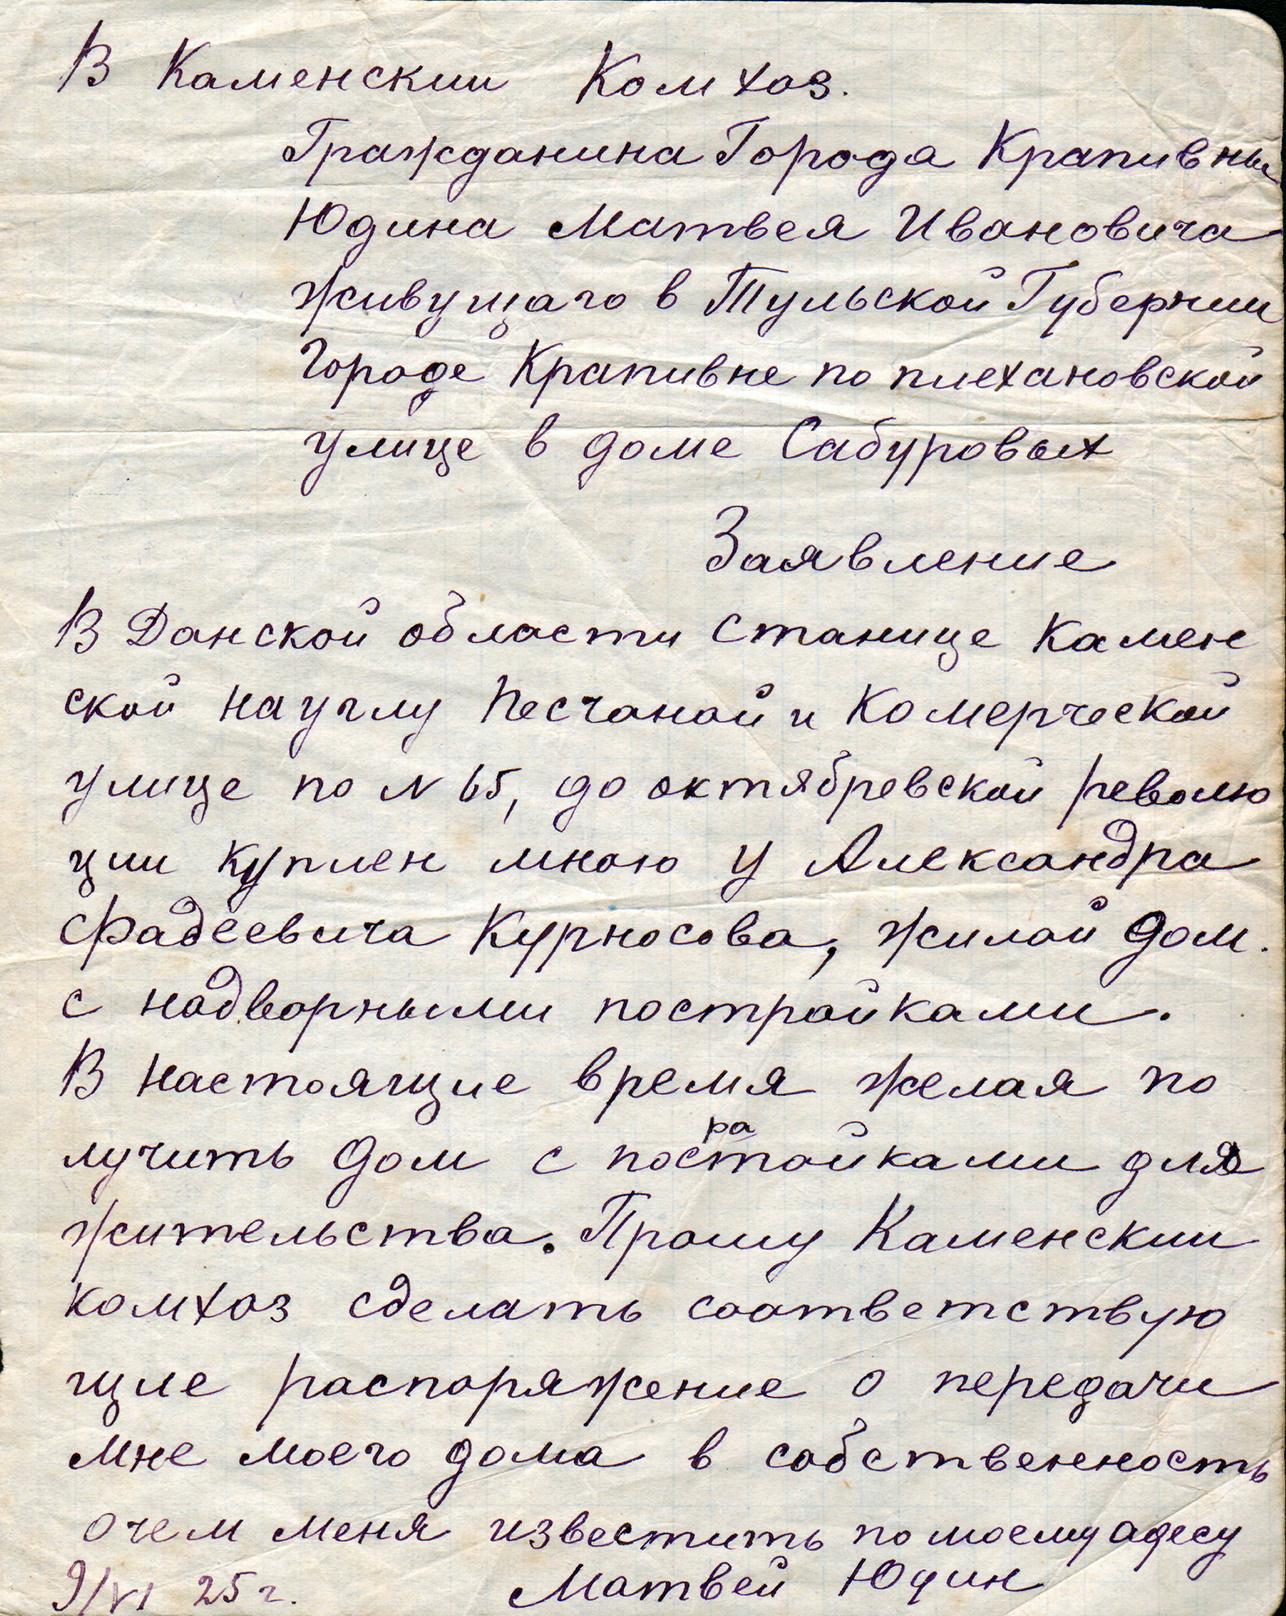 В Каменскии Комхоз.
Гражданина Города Крапивны
Юдина Матвея Ивановича
Живущаго в Тульской Губернии
Городе Крапивне по плехановской
улице в доме Сабуровых
Заявление
В Данской области станице Камен
ской на углу Песчаной и Комерческой
улице по № 65, до октябревской револю
ции куплен мною у Александра
Фадеевича Курносова, жилой дом.
с надворными постройками.
В настоящие время желая по
лучить дом с постойками для
ра
жительства. Прошу Каменскии
комхоз сделать соответствую
щие распоряжение о передачи
мне моего дома в собственность
о чем меня известить по моему адесу
9/VI 25 г. Матвей Юдин